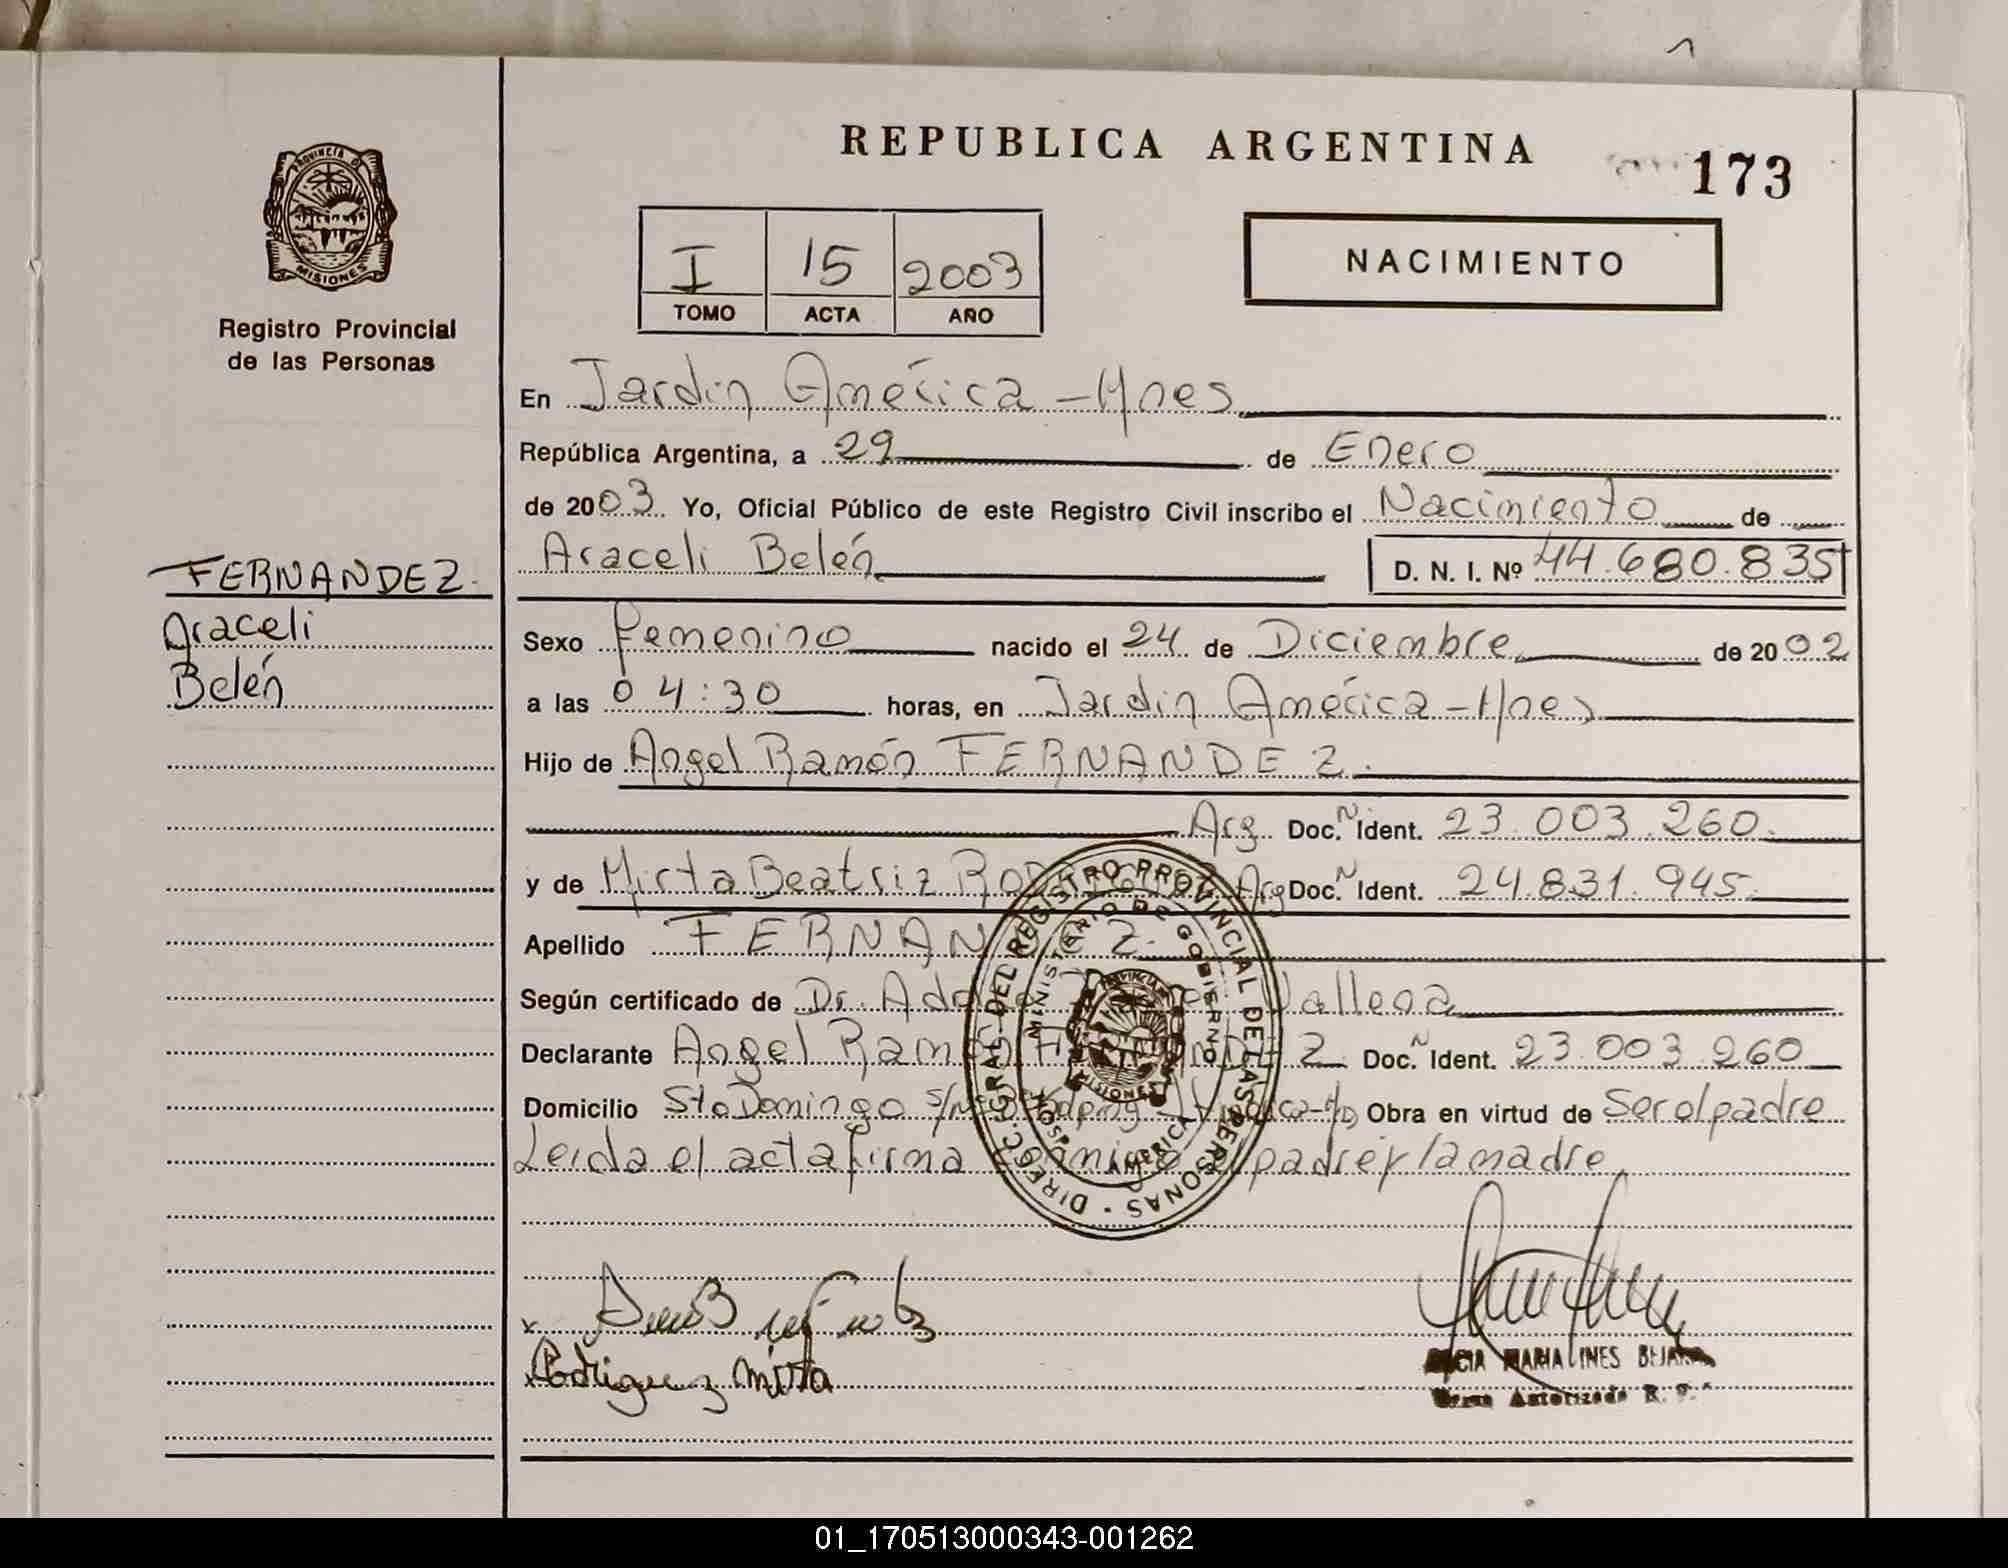 REPUBLICA ARGENTINA
173
PROVINCIA D
MISIONES
Registro Provincial
de las Personas
I 15 2003
TOMO ACTA AÑO
NACIMIENTO
En Jardín América - Mnes
República Argentina, a 29 de Enero
de 2003 Yo, Oficial Público de este Registro Civil inscribo el Nacimiento de
Araceli Belén D. N. I. Nº 44.680.835
FERNANDEZ.
Araceli
Belén
Sexo femenino nacido el 24 de Diciembre de 2002
a las 04:30 horas, en Jardín América - Mnes
Hijo de Angel Ramón FERNANDEZ.
Arg. Doc. N Ident. 23.003.260.
y de Mirta Beatriz Arg Doc. N Ident. 24.831.945.
Apellido FERNANDEZ.
Según certificado de Dr.
Declarante Angel Ramón FERNANDEZ Doc. N Ident. 23.003.260
Domicilio Sto Domingo s/n Obra en virtud de Ser el padre
Leída el acta firma conmigo el padre y la madre.
DIRECC. GRAL. DEL REGISTRO PROVINCIAL DE LAS PERSONAS
MINISTERIO DE GOBIERNO
MISIONES
AMERICA
x
x Rodriguez Mirta
MARIA INES
Autorizada R. P.
01_170513000343-001262